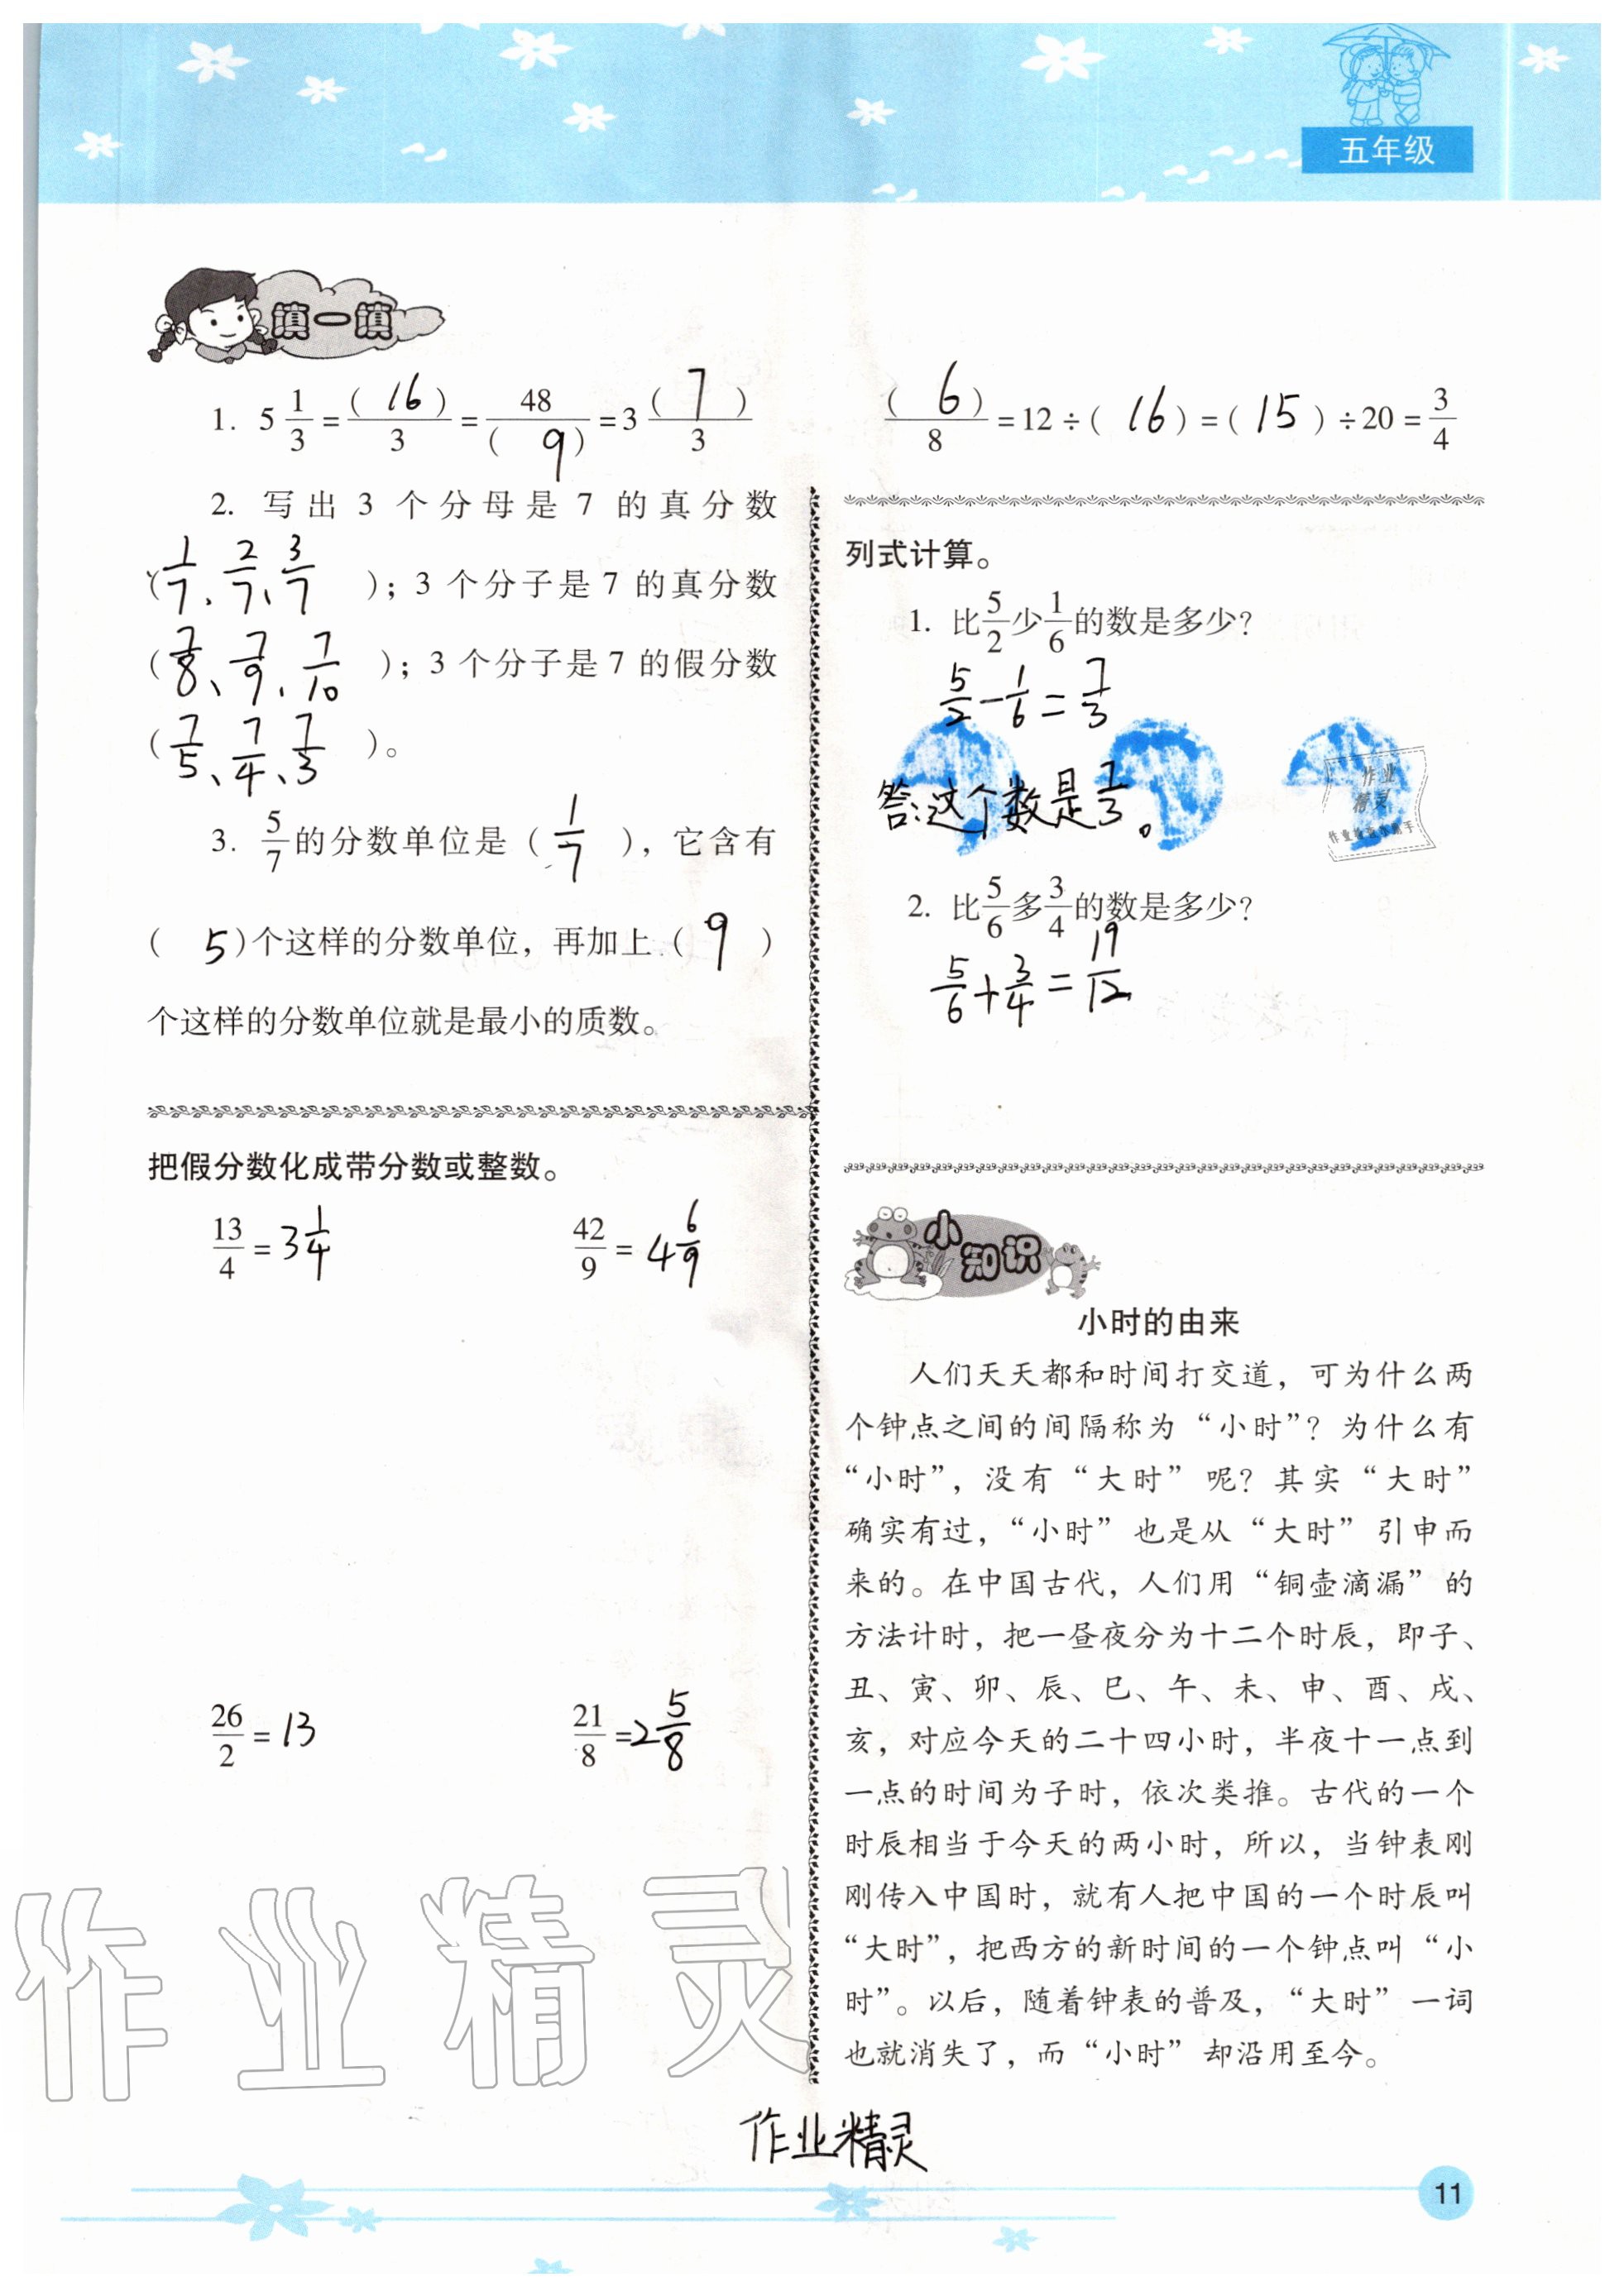 五年级
填一填
1. 5 1/3 = ( 16 )/3 = 48/( 9 ) = 3 ( 7 )/3
2. 写出 3 个分母是 7 的真分数
( 1/7、2/7、3/7 )；3 个分子是 7 的真分数
( 7/8、7/9、7/10 )；3 个分子是 7 的假分数
( 7/5、7/4、7/3 )。
3. 5/7 的分数单位是 ( 1/7 )，它含有
( 5 )个这样的分数单位，再加上 ( 9 )
个这样的分数单位就是最小的质数。
把假分数化成带分数或整数。
13/4 = 3 1/4 42/9 = 4 6/9
26/2 = 13 21/8 = 2 5/8
( 6 )/8 = 12 ÷ ( 16 ) = ( 15 ) ÷ 20 = 3/4
列式计算。
1. 比 5/2 少 1/6 的数是多少？
5/2 - 1/6 = 7/3
答:这个数是 7/3 。
作业
精灵
2. 比 5/6 多 3/4 的数是多少？
5/6 + 3/4 = 19/12
小知识
小时的由来
人们天天都和时间打交道，可为什么两
个钟点之间的间隔称为“小时”？为什么有
“小时”，没有“大时”呢？其实“大时”
确实有过，“小时”也是从“大时”引申而
来的。在中国古代，人们用“铜壶滴漏”的
方法计时，把一昼夜分为十二个时辰，即子、
丑、寅、卯、辰、巳、午、未、申、酉、戌、
亥，对应今天的二十四小时，半夜十一点到
一点的时间为子时，依次类推。古代的一个
时辰相当于今天的两小时，所以，当钟表刚
刚传入中国时，就有人把中国的一个时辰叫
“大时”，把西方的新时间的一个钟点叫“小
时”。以后，随着钟表的普及，“大时”一词
也就消失了，而“小时”却沿用至今。
作业精灵
作业精灵
11